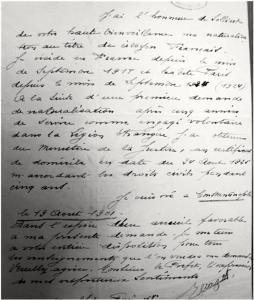 J'ai l'honneur de solliciter
de votre haute bienveillance ma naturalisa
tion au titre de citoyen Français.
Je réside en France depuis le mois
de Septembre 1918 et habite Paris
depuis le mois de Septembre (1924)
A la suite d'une première demande
de naturalisation après cinq années
de service comme engagé volontaire
dans la Légion étrangère j'ai obtenu
du Ministère de la Justice, un certificat
de domicile en date du 24 Août 1925
m'accordant les droits civils pendant
cinq ans.
Je suis né à Constantinople
le 13 Août 1901.
Dans l'espoir d'un accueil favorable
à ma présente demande je me tiens
à votre entière disposition pour tous
les renseignements que l'on voudra me demander
Veuillez agréer, Monsieur le Préfet, l'expression
de mes respectueux Sentiments